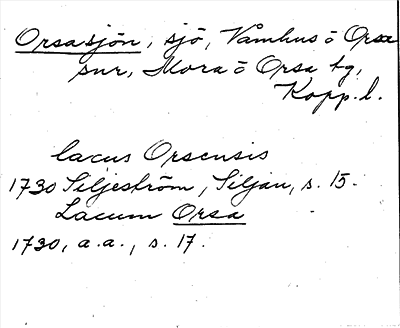 Orsasjön, sjö, Våmhus ö Orsa
snr, Mora ö Orsa tg,
Kopp. l.
lacus Orsensis
1730 Siljeström, Siljan, s. 15.
Lacum Orsa
1730, a.a., s. 17.